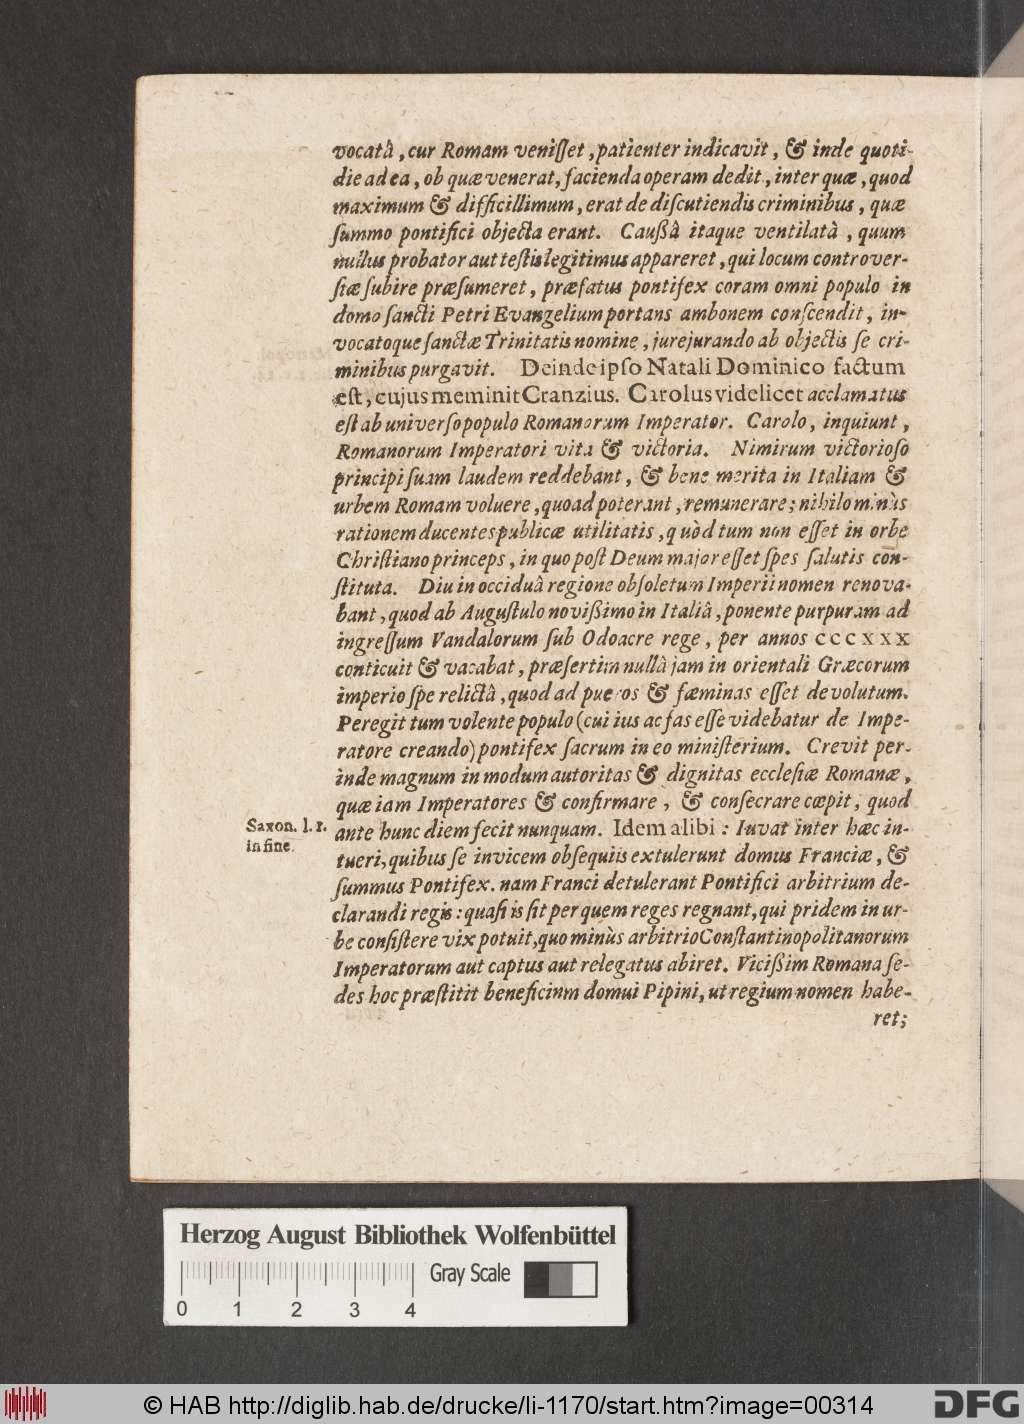 vocatâ, cur Romam veniſſet, patienter indicavit, & inde quoti-
die ad ea, ob quæ venerat, facienda operam dedit, inter quæ, quod
maximum & difficillimum, erat de diſcutiendis criminibus, quæ
ſummo pontifici objecta erant. Cauſsâ itaque ventilatâ, quum
nullus probator aut teſtis legitimus appareret, qui locum controver-
ſiæ ſubire præſumeret, præfatus pontifex coram omni populo in
domo ſancti Petri Evangelium portans ambonem conſcendit, in-
vocatoque ſanctæ Trinitatis nomine, jurejurando ab objectis ſe cri-
minibus purgavit. Deinde ipſo Natali Dominico factum
eſt, cujus meminit Cranzius. Carolus videlicet acclamatus
eſt ab univerſo populo Romanorum Imperator. Carolo, inquiunt,
Romanorum Imperatori vita & victoria. Nimirum victorioſo
principi ſuam laudem reddebant, & bene merita in Italiam &
urbem Romam voluere, quoad poterant, remunerare; nihilominùs
rationem ducentes publicæ utilitatis, quòd tum non eſſet in orbe
Chriſtiano princeps, in quo poſt Deum major eſſet ſpes ſalutis con-
ſtituta. Diu in occiduâ regione obſoletum Imperii nomen renova-
bant, quod ab Auguſtulo noviſsimo in Italiâ, ponente purpuram ad
ingreſſum Vandalorum ſub Odoacre rege, per annos CCCXXX
conticuit & vacabat, præſertim nullâ jam in orientali Græcorum
imperio ſpe relictâ, quod ad pueros & fæminas eſſet devolutum.
Peregit tum volente populo (cui ius ac fas eſſe videbatur de Impe-
ratore creando) pontifex ſacrum in eo miniſterium. Crevit per-
inde magnum in modum autoritas & dignitas eccleſiæ Romanæ,
quæ iam Imperatores & confirmare, & conſecrare cœpit, quod
Saxon. l. 1. ante hunc diem fecit nunquam. Idem alibi: Iuvat inter hæc in-
in fine. tueri, quibus ſe invicem obſequiis extulerunt domus Franciæ, &
ſummus Pontifex. nam Franci detulerant Pontifici arbitrium de-
clarandi regis: quaſi is ſit per quem reges regnant, qui pridem in ur-
be conſiſtere vix potuit, quo minùs arbitrio Conſtantinopolitanorum
Imperatorum aut captus aut relegatus abiret. Viciſsim Romana ſe-
des hoc præſtitit beneficinm domui Pipini, ut regium nomen habe-
ret;
Herzog August Bibliothek Wolfenbüttel
Gray Scale
0 1 2 3 4
© HAB http://diglib.hab.de/drucke/li-1170/start.htm?image=00314
DFG